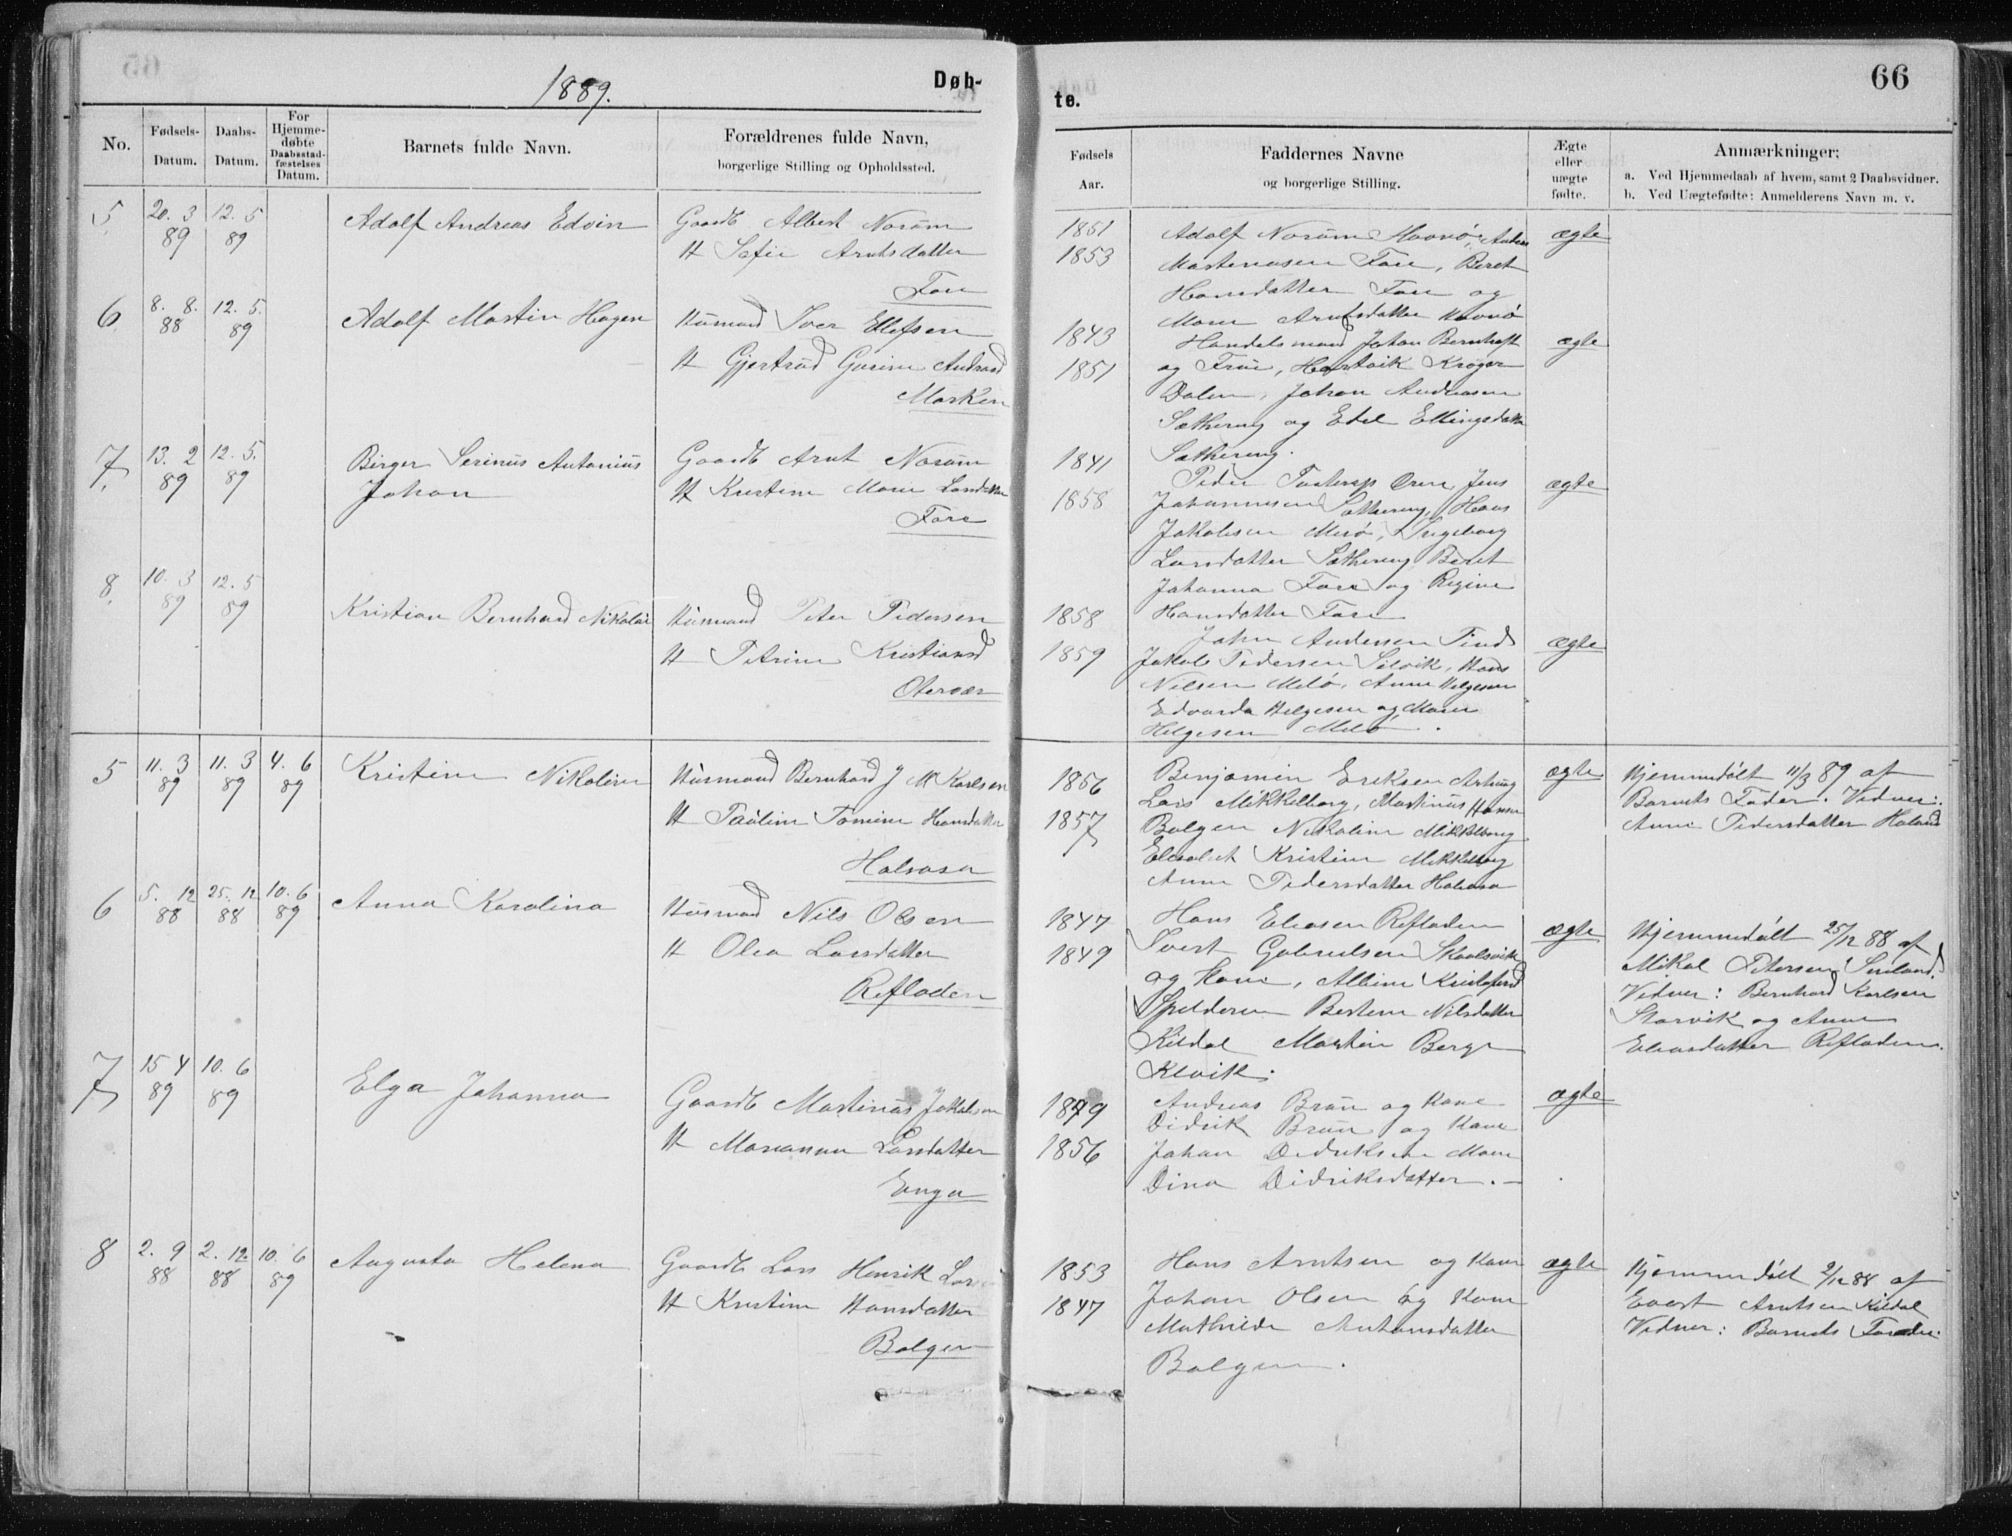 1889.
Døb-
No.
Fødsels-
Datum.
Daabs-
Datum.
For
Hjemme-
døbte
Daabsstad-
fæstelses
Datum.
Barnets fulde Navn.
Forældrenes fulde Navn,
borgerlige Stilling og Opholdssted.
5 20. 3 12. 5 Adolf Andreas Edvin Gaardb Albert Norum
89 89 H Sofie Arntsdatter
Fore
6 8. 8. 12. 5. Adolf Martin Hagen Husmand Iver Ellefsen
88 89 H Gjertrud Andrasd
Marken
7. 13. 2 12. 5. Birger Serinus Antonius Gaardb Arnt Norum
89 89 Johan H Kristine Marie Larsdatter
Fore
8. 10. 3 12. 5
89 89 Kristian Bernhard Nikolai Husmand Peter Pedersen
H Petrine Kristiansd
Otervær
5 11. 3 11. 3 4. 6 Kristine Nikoline Husmand Bernhard J M Karlsen
89 89 89 H Pauline Tomine Hansdatter
Halsosa
6 5. 12 25. 12 10. 6 Anna Karolina Husmand Nils Olsen
88 88 89 H Olea Larsdatter
Refladen
7 15 4 10. 6 Elga Johanna Gaardb Martinus Jakobsen
89 89 H Marianna Larsdatter
Enga
8 2. 9 2. 12. 10. 6 Augusta Helena Gaardb Lars Henrik
88 88 89 H Kristine Hansdatter
Bolgen
te.
66
Fødsels
Aar.
Faddernes Navne
og borgerlige Stilling.
Ægte
eller
uægte
fødte.
Anmærkninger;
a. Ved Hjemmedaab af hvem, samt 2 Daabsvidner.
b. Ved Uægtefødte: Anmelderens Navn m. v.
1851 Adolf Norum ægte
1853 Martenasen Fore, Beret
Hansdatter Fore og
Arntsdatter
1843 Handelsmand Johan Bernhoft ægte
1851 og Frue, Hartvik Krøger
Dalen, Johan Andreasen
Sæthereng og Edel Ellingsdatter
Sætherng.
1841 Peder Jens ægte
1858 Johannesen Sætherng, Hans
Jakobsen Meø, Ingeborg
Larsdatter Sætherng Beret
Johanna Fore og Regine
1858 Hansdatter Fore
Johan Andersen ægte
1859 Jakob Pedersen Selvik, Hans
Nilsen Melø, Anna Helgesen
Edvarda Helgesen og Maren
Helgesen Melø.
1856 Benjamin Eriksen ægte Hjemmedøbt 11/3 89 af
Lars Mikkelborg, Martinus Hansen Barnets Fader. Vidner:
1857 Bolgen Nikoline Mikkelborg Anne Pedersdatter
Kristine Mikkelborg
Anne Pedersdatter Halsosa
1847 Hans Eliasen Refladen ægte Hjemmedøbt 25/12 88 af
1849 Ivert Gabrielsen Skaalsvik Mikal Petersen
og Kone, Albine Kristofersd Vidner: Bernhard Karlsen
Spilderen Nilsdatter Storvik og Anne
Kildal Martin Berg Eliasdatter Refladen.
Klvik.
1849 Andreas Brun og Kone ægte
Didrik Brun og Kone
1856 Johan Didriksen
Dina Didriksdatter.
1853 Hans Arntsen og Kone ægte Hjemmedøbt 2/12 88 af
1847 Johan Olsen og Kone Evert Arntsen Kildal
Mathilde Antonsdatter Vidner: Barnets Forældre.
Bolgen.